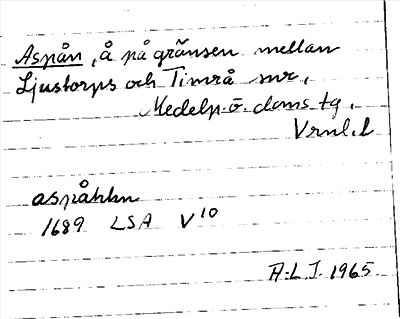 Aspån, å på gränsen mellan
Ljustorps och Timrå snr,
Medelp. ö. doms. tg,
Vrnl. l
aspåhln
1689 LSA V10
A.L.J. 1965